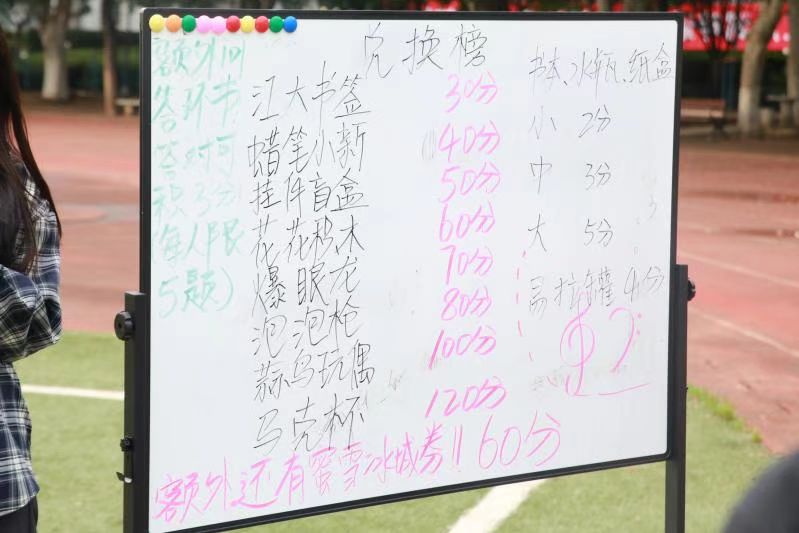 兑换榜
额外回
答环节
答对可
积3分
每人限
5题)
江大书签 30分
蜡笔小新 40分
挂件盲盒 50分
花花积木 60分
爆眼龙 70分
泡泡枪 80分
蒜鸟玩偶 100分
马克杯 120分
书本、水瓶、纸盒
小 2分
中 3分
大 5分
易拉罐 4分
额外还有蜜雪冰城券!! 60分